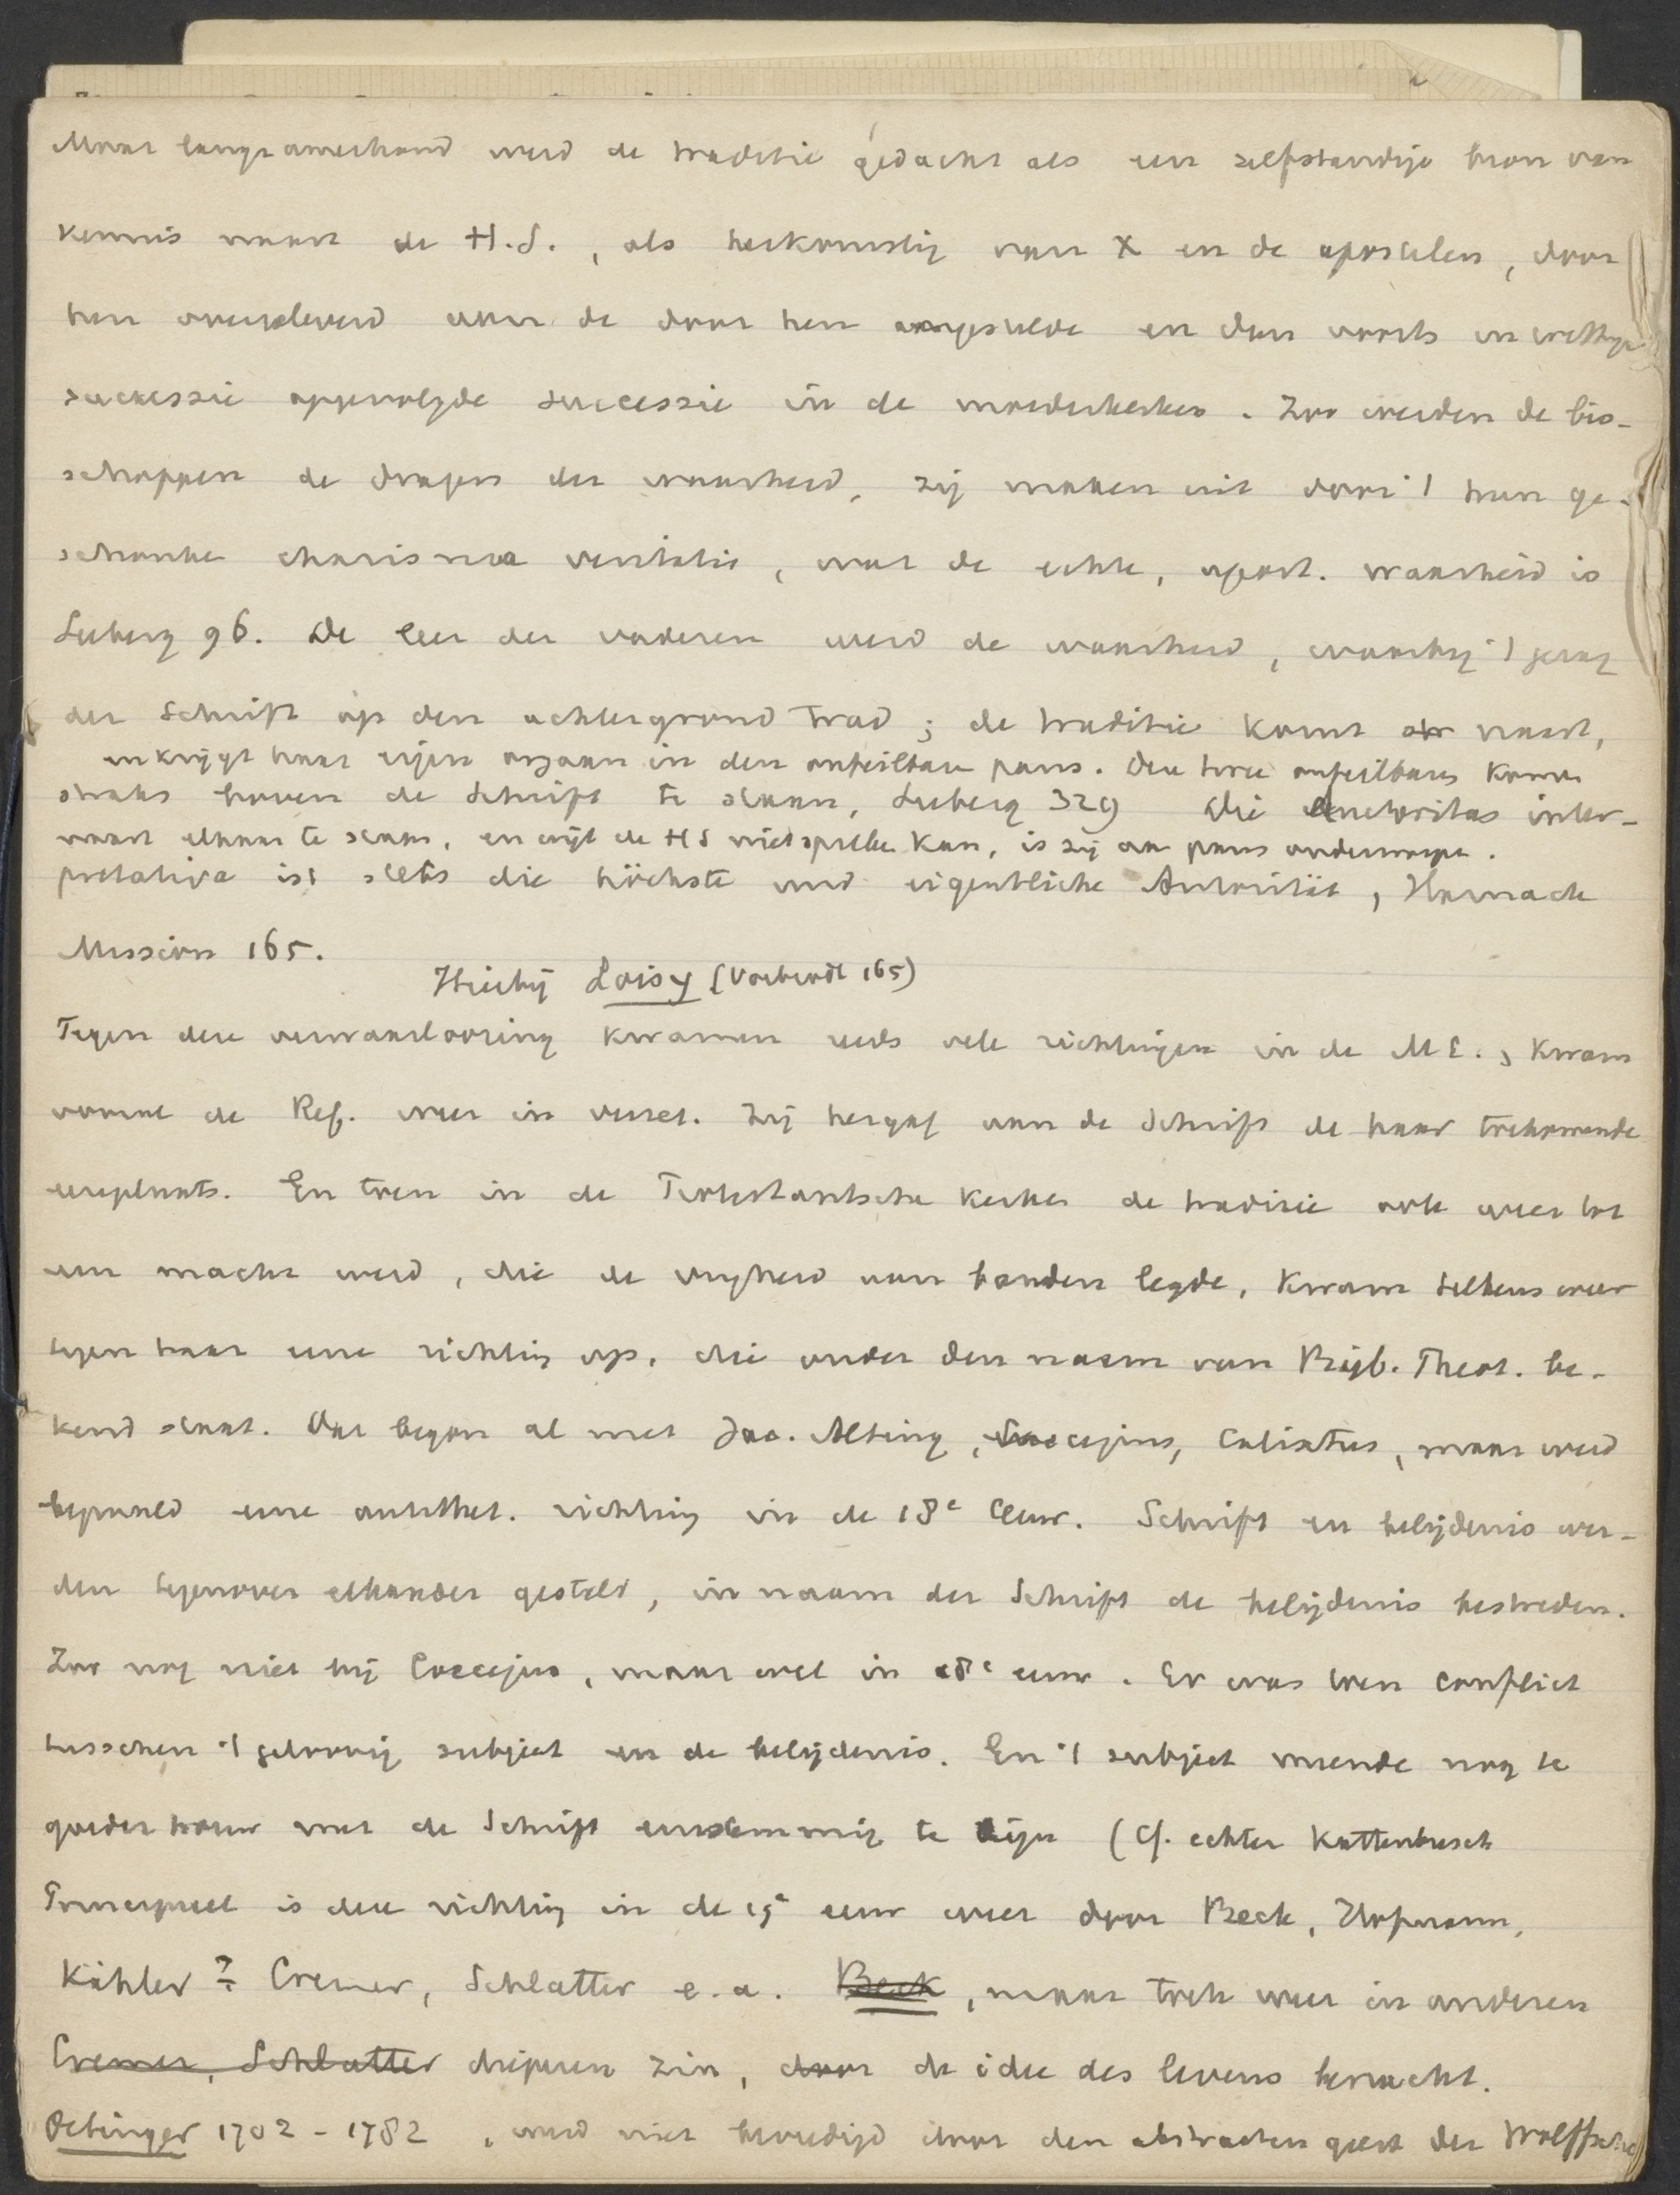 Maar langzamerhand werd de traditie gedacht als een zelfstandige bron van
kennis naast de H.S., als herkomstig van X en de apostelen, door
hen overgeleverd aan de door hen aangestelde en dan voorts in wettige
successie opgevolgde successie in de moederkerken. Zoo werden de bis-
schoppen de dragers der waarheid, zij maken uit door 't hun ge-
schonken charisma veritatis, wat de echte, apost. waarheid is
Seeberg 96. De leer der vaderen werd de waarheid, waarbij 't gezag
der Schrift op den achtergrond trad; de traditie komt naast,
en krijgt haar eigen orgaan in den onfeilbaren paus. Deze twee onfeilbares komen
straks boven de Schrift te staan, Seeberg 329 Die auctoritas inter-
naast elkaar te staan, en wijl de HS niet spreken kan, is zij aan paus onderworpen.
pretativa ist stets die höchste und eigentliche Autorität, Harnack
Mission 165.
Hierbij Loisy (Voorbereidt 165)
Tegen deze verwaarloozing kwamen reeds vele richtingen in de ME., kwam
vooral de Ref. weer in verzet. Zij hergaf aan de Schrift de haar toekomende
eereplaats. En toen in de Protestantsche kerken de traditie ook weer tot
een macht werd, die de vrijheid aan banden legde, kwam telkens weer
tegen haar eene richting op, die onder den naam van Bijb. Theol. be-
kend staat. Dat begon al met Jac. Alting, Coccejus, Calixtus, maar werd
bepaald eene antithet. richting in de 18e eeuw. Schrift en belijdenis wer-
den tegenover elkander gesteld, in naam der Schrift de belijdenis bestreden.
Zoo nog niet bij Coccejus, maar wel in 18e eeuw. Er was toen conflict
tusschen 't geloovig subject en de belijdenis. En 't subject meende nog te
goeder trouw met de Schrift eenstemmig te zijn (cf. echter Kattenbusch
Principieel is deze richting in de 19e eeuw weer door Beck, Hofmann,
Kähler ? Cremer, Schlatter e.a. Beck, maar toch weer in anderen
Cremer, Schlatter dieperen zin, door de idee des levens bevrucht.
Oetinger 1702 - 1782, werd niet bevredigd door den abstracten geest der Wolffsche